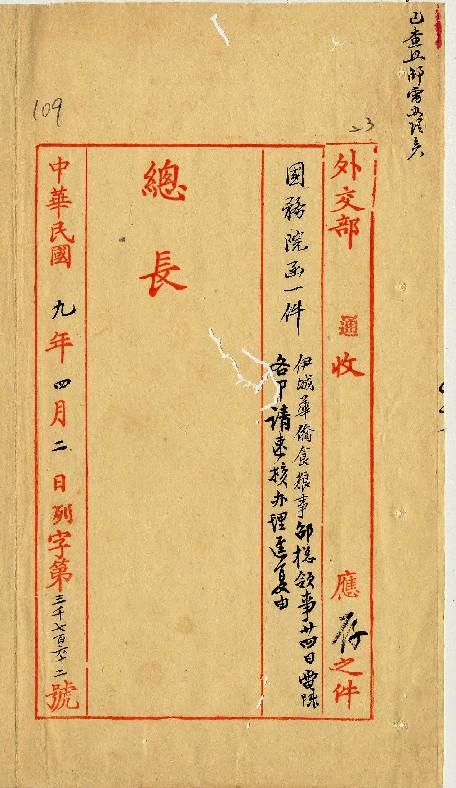 109
23
外交部 通 收 應存之件
國務院函一件
伊城華僑食糧事邵總領事廿四日電陳
各節請速核办理並复由
總 長
中華民國 九年 四月 二 日列字第三千七百六十二號